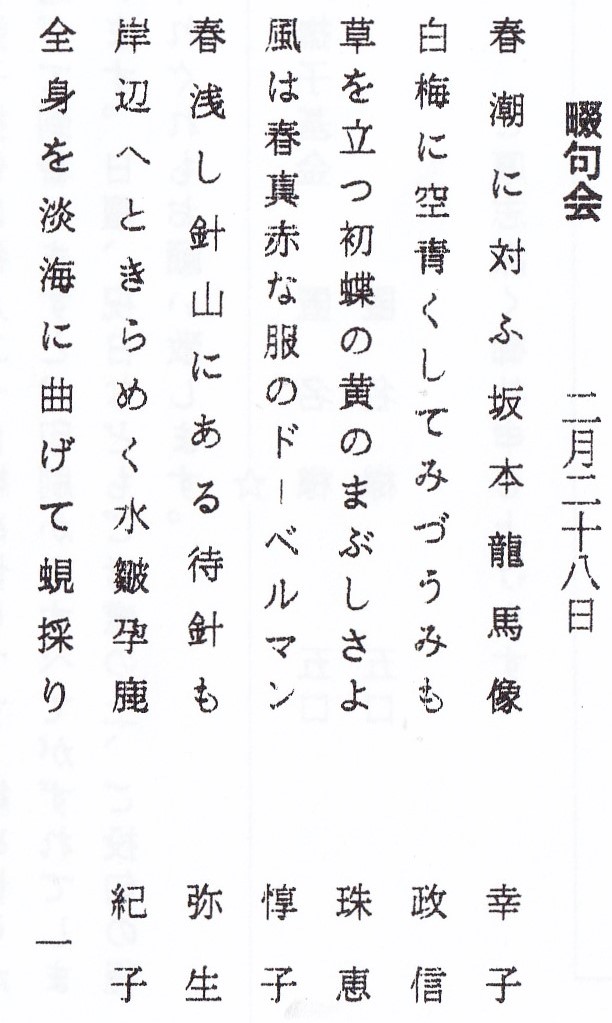 畷句会 二月二十八日
春潮に対ふ坂本龍馬像 幸子
白梅に空青くしてみづうみも 政信
草を立つ初蝶の黄のまぶしさよ 珠恵
風は春真赤な服のドーベルマン 惇子
春浅し針山にある待針も 弥生
岸辺へときらめく水皺孕鹿 紀子
全身を淡海に曲げて蜆採り 一